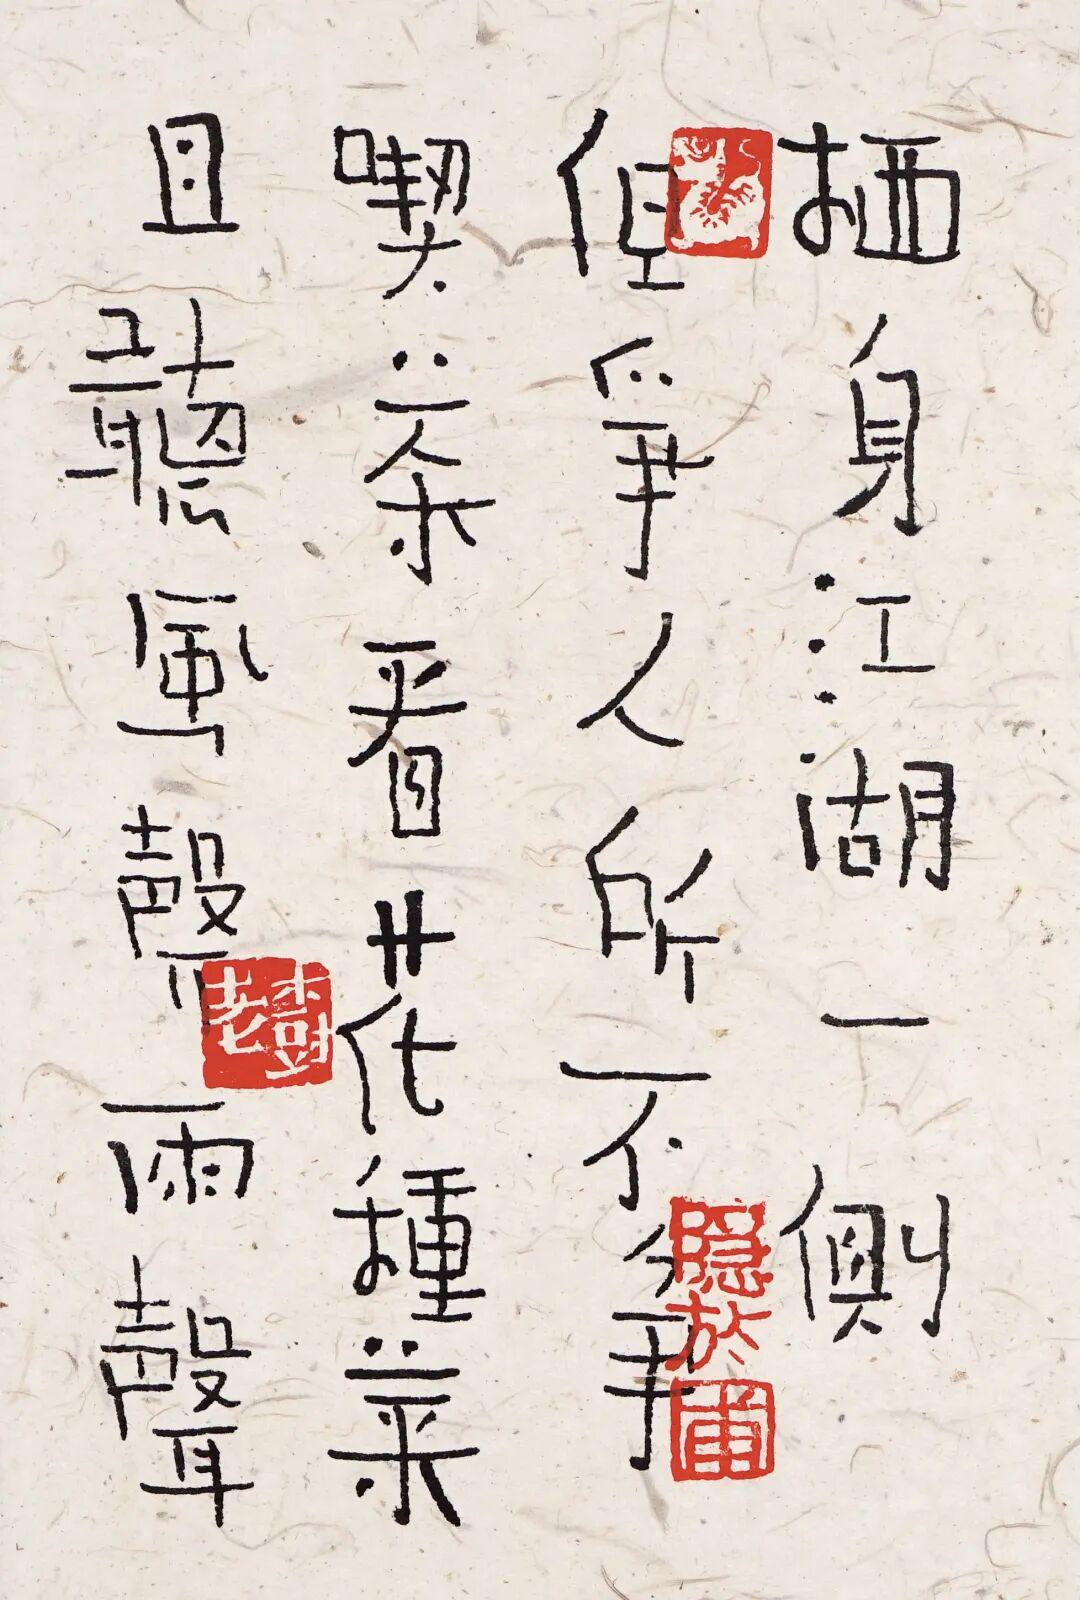 栖身江湖一側
但爭人所不爭
喫茶看花種菜
且聽風聲雨聲
老樹
隐於画